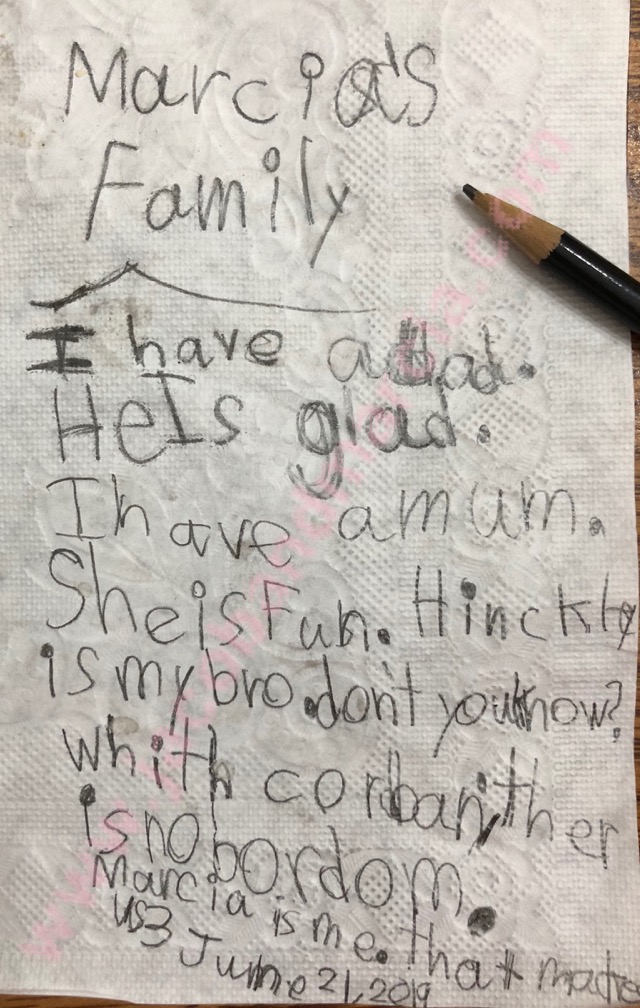 Marcia's
Family
I have a dad.
He Is glad.
I have a mum.
She is Fun. Hinckly
is my bro. don't you know?
whith corban, ther
is no bordom.
Marcia is me. that mads
us 3
June 21, 2019